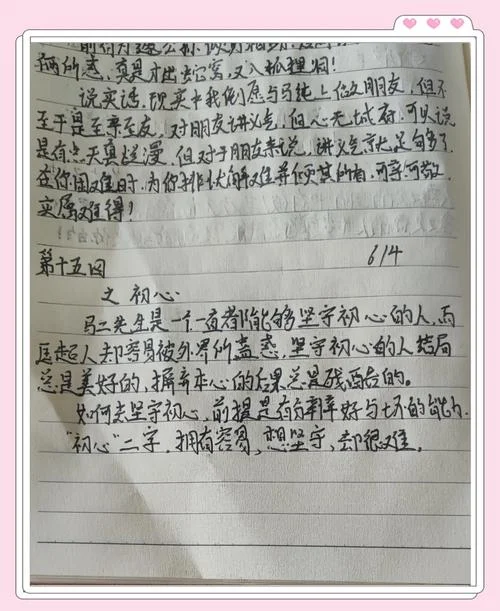 俩的惑，真是才出蛇窝，又入狐狸洞！
说实话，现实中我倒愿与马纯上做朋友，但不
至于是至亲至友，对朋友讲义气，但心无城府，可以说
是有点天真烂漫，但对于朋友来说，讲义气就足够了
在你困难时，为你排忧解难并倾其所有，可亲可敬，
实属难得！
第十五回 6/4
之初心
马二先生是一个一直都能够坚守初心的人，而
匡超人却容易被外界所蛊惑，坚守初心的人结局
总是美好的，摒弃本心的后果总是残酷的。
如何去坚守初心，前提是有辨好与坏的能力.
"初心"二字，拥有容易，想坚守，却很难。